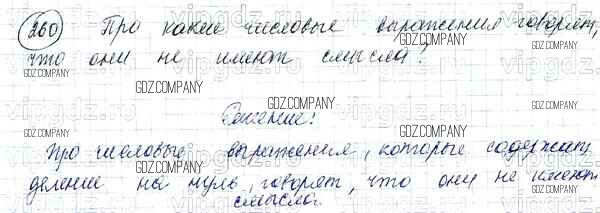 260 Про какие числовые выражения говорят,
что они не имеют смысла?
GDZ.COMPANY
Решение:
Про числовые выражения, которые содержат
деление на нуль, говорят, что они не имеют
смысла.